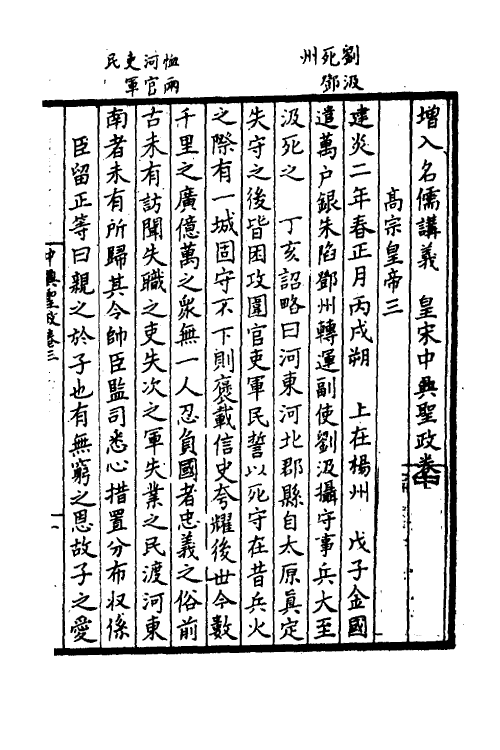 劉汲
死鄧
州
恤兩
河官
吏軍
民
增入名儒講義　皇宋中興聖政卷
高宗皇帝三
建炎二年春正月丙戌朔　上在楊州　戊子金國
遣萬户銀朱陷鄧州轉運副使劉汲攝守事兵大至
汲死之　丁亥詔略曰河東河北郡縣自太原真定
失守之後皆因攻圍官吏軍民誓以死守在昔兵火
之際有一城固守不下則褒載信史夸耀後世今數
千里之廣億萬之衆無一人忍負國者忠義之俗前
古未有訪聞失職之吏失次之軍失業之民渡河東
南者未有所歸其令帥臣監司悉心措置分布收係
臣留正等曰親之於子也有無窮之恩故子之愛
中興聖政卷三